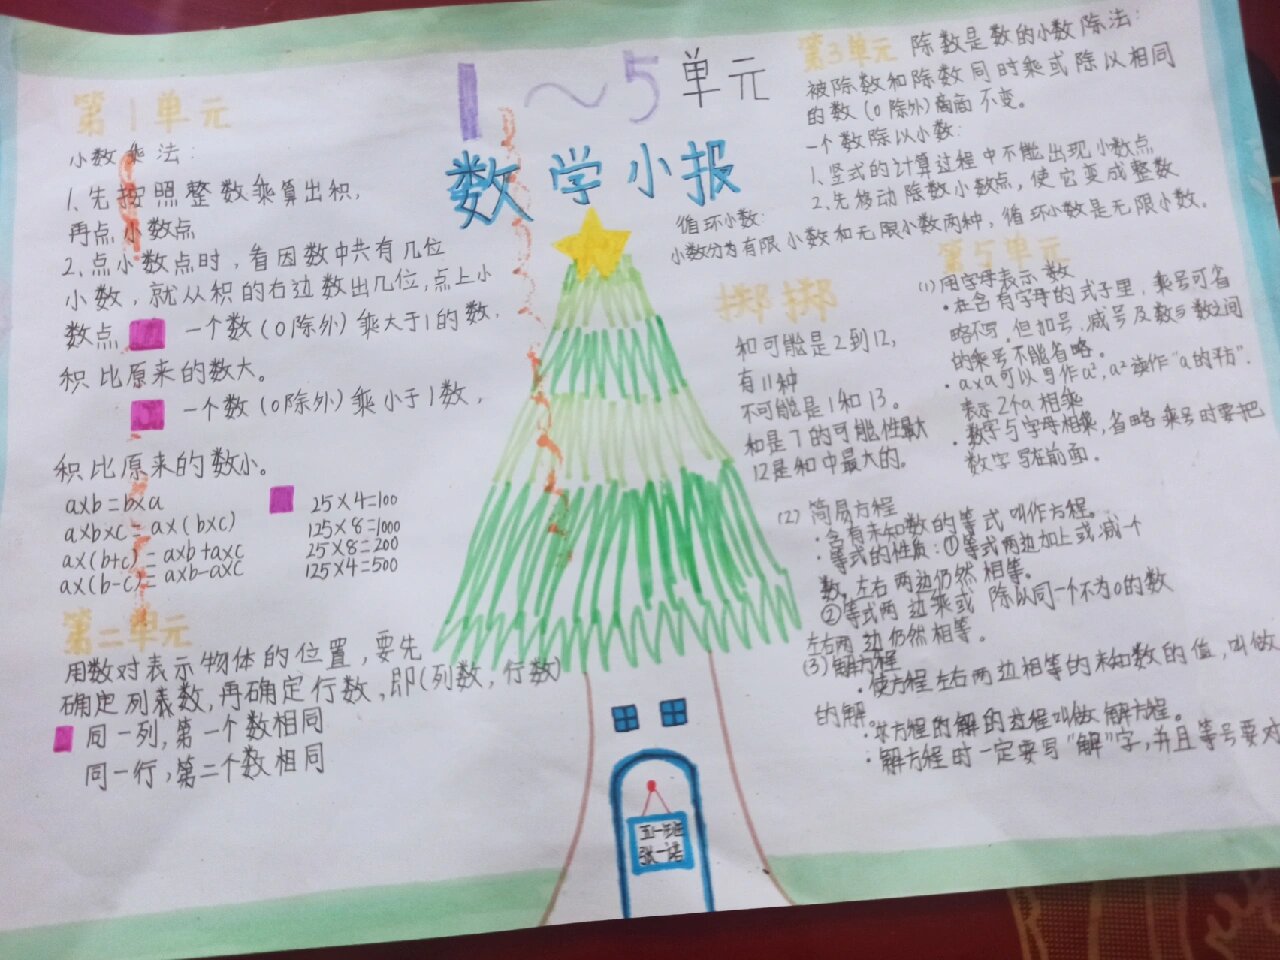 1～5单元
数学小报
第1单元
小数乘法:
1、先按照整数乘算出积,
再点小数点
2、点小数点时,看因数中共有几位
小数,就从积的右边数出几位,点上小
数点
一个数(0除外)乘大于1的数,
积比原来的数大。
一个数(0除外)乘小于1数,
积比原来的数小。
a×b=b×a
a×b×c=a×(b×c)
a×(b+c)=a×b+a×c
a×(b-c)=a×b-a×c
25×4=100
125×8=1000
25×8=200
125×4=500
第二单元
用数对表示物体的位置,要先
确定列数,再确定行数,即(列数,行数)
同一列,第一个数相同
同一行,第二个数相同
第3单元 除数是数的小数除法:
被除数和除数同时乘或除以相同
的数(0除外)商不变。
一个数除以小数:
1、竖式的计算过程中不能出现小数点
2、先移动除数小数点,使它变成整数
循环小数:
小数分为有限小数和无限小数两种,循环小数是无限小数。
掷掷
和可能是2到12,
有11种
不可能是1和13。
和是7的可能性最大
12是和中最大的。
第5单元
(1)用字母表示数
·在含有字母的式子里,乘号可省
略不写,但加号、减号及数与数之间
的乘号不能省略。
·a×a可以写作a²,a²读作"a的平方".
表示2个a相乘
·数字与字母相乘,省略乘号时要把
数字写在前面.
(2)简易方程
·含有未知数的等式叫作方程。
·等式的性质:①等式两边加上或减一个
数,左右两边仍然相等。
②等式两边乘或除以同一个不为0的数
左右两边仍然相等。
(3)解方程
·使方程左右两边相等的未知数的值,叫做
的解。
·求方程的解的过程叫做解方程。
·解方程时一定要写"解"字,并且等号要对
五一班
张一诺